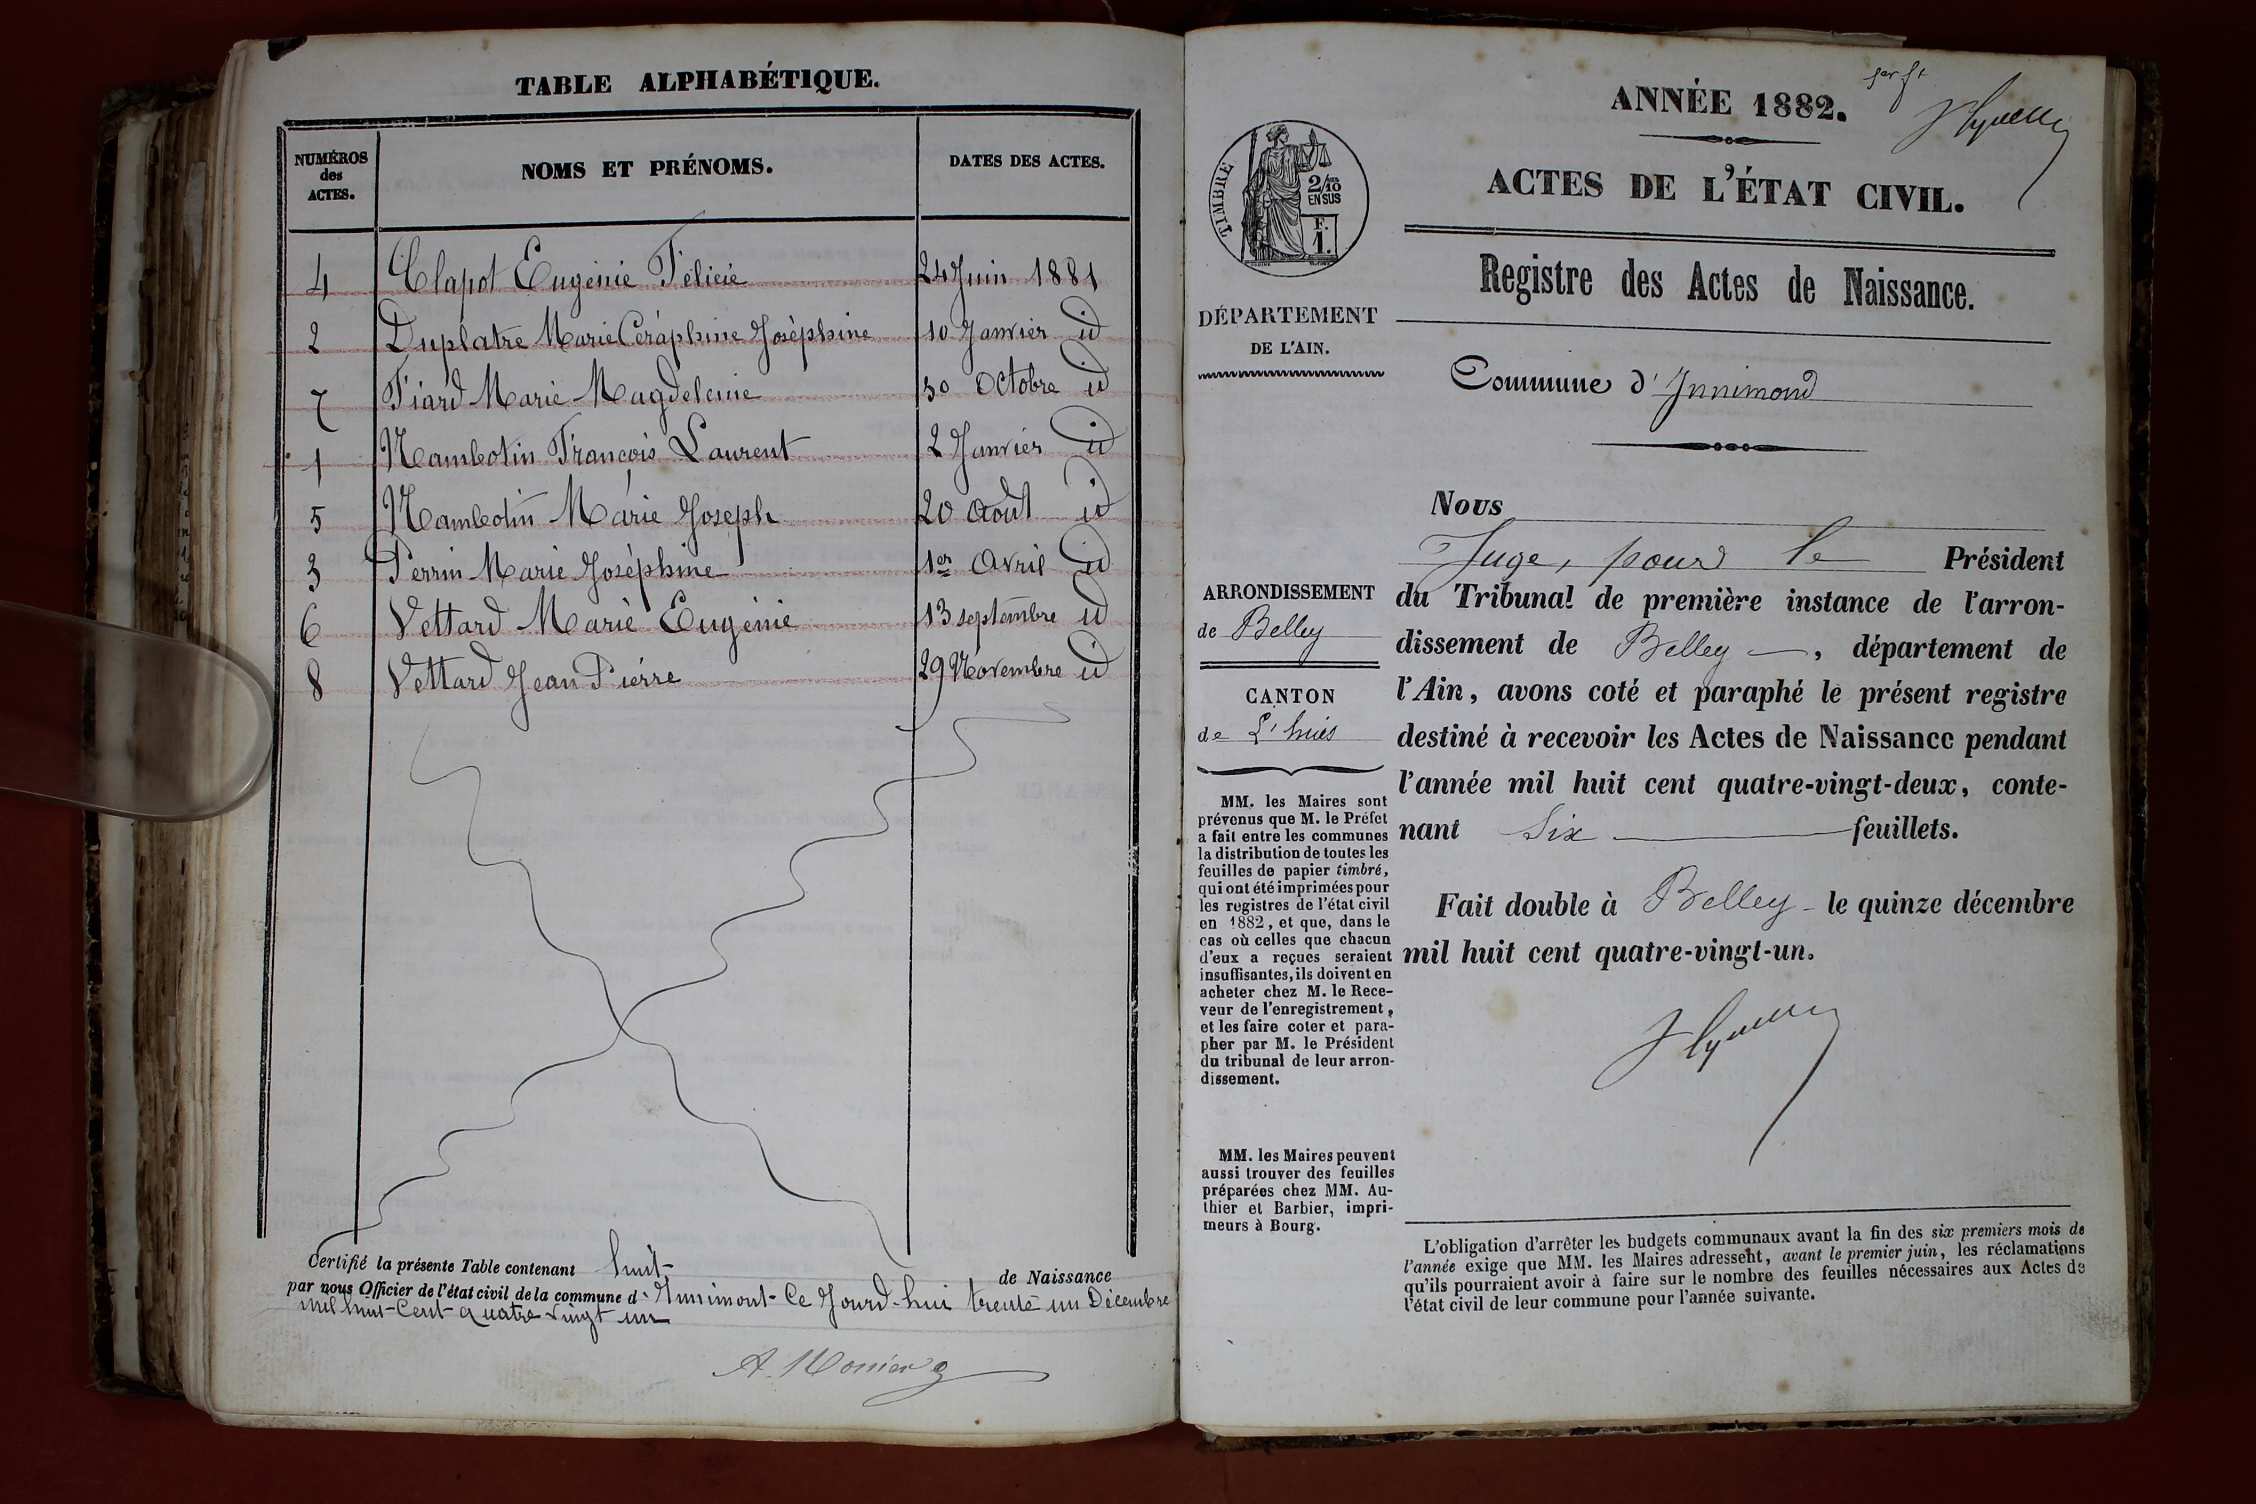 TABLE ALPHABÉTIQUE.
NUMÉROS des ACTES.
NOMS ET PRÉNOMS.
DATES DES ACTES.
4 Clapot Eugénie Félicie 24 Juin 1881
2 Duplatre Marie Céraphine Josèphine 10 Janvier id
7 Fiard Marie Magdeleine 30 Octobre id
1 Nambotin François Laurent 2 Janvier id
5 Nambotin Marie Joseph 20 Août id
3 Perrin Marie Josèphine 1er Avril id
6 Vettard Marie Eugénie 13 septembre id
8 Vettard Jean Pierre 29 Novembre id
Certifié la présente Table contenant huit de Naissance
par nous Officier de l'état civil de la commune d'Innimont Ce Jourd-hui trente un Décembre
mil huit-Cent quatre vingt un
A. Monier
ANNÉE 1882.
ACTES DE L'ÉTAT CIVIL.
Registre des Actes de Naissance.
Commune d'Innimond
TIMBRE
2/10
EN SUS
F.
1.
DÉPARTEMENT
DE L'AIN.
ARRONDISSEMENT
de Belley
CANTON
de L'huis
MM. les Maires sont
prévenus que M. le Préfet
a fait entre les communes
la distribution de toutes les
feuilles de papier timbré,
qui ont été imprimées pour
les registres de l'état civil
en 1882, et que, dans le
cas où celles que chacun
d'eux a reçues seraient
insuffisantes, ils doivent en
acheter chez M. le Rece-
veur de l'enregistrement,
et les faire coter et para-
pher par M. le Président
du tribunal de leur arron-
dissement.
MM. les Maires peuvent
aussi trouver des feuilles
préparées chez MM. Au-
thier et Barbier, impri-
meurs à Bourg.
Nous
Juge, pour le Président
du Tribunal de première instance de l'arron-
dissement de Belley, département de
l'Ain, avons coté et paraphé le présent registre
destiné à recevoir les Actes de Naissance pendant
l'année mil huit cent quatre-vingt-deux, conte-
nant Six feuillets.
Fait double à Belley le quinze décembre
mil huit cent quatre-vingt-un.
L'obligation d'arrêter les budgets communaux avant la fin des six premiers mois de
l'année exige que MM. les Maires adressent, avant le premier juin, les réclamations
qu'ils pourraient avoir à faire sur le nombre des feuilles nécessaires aux Actes de
l'état civil de leur commune pour l'année suivante.